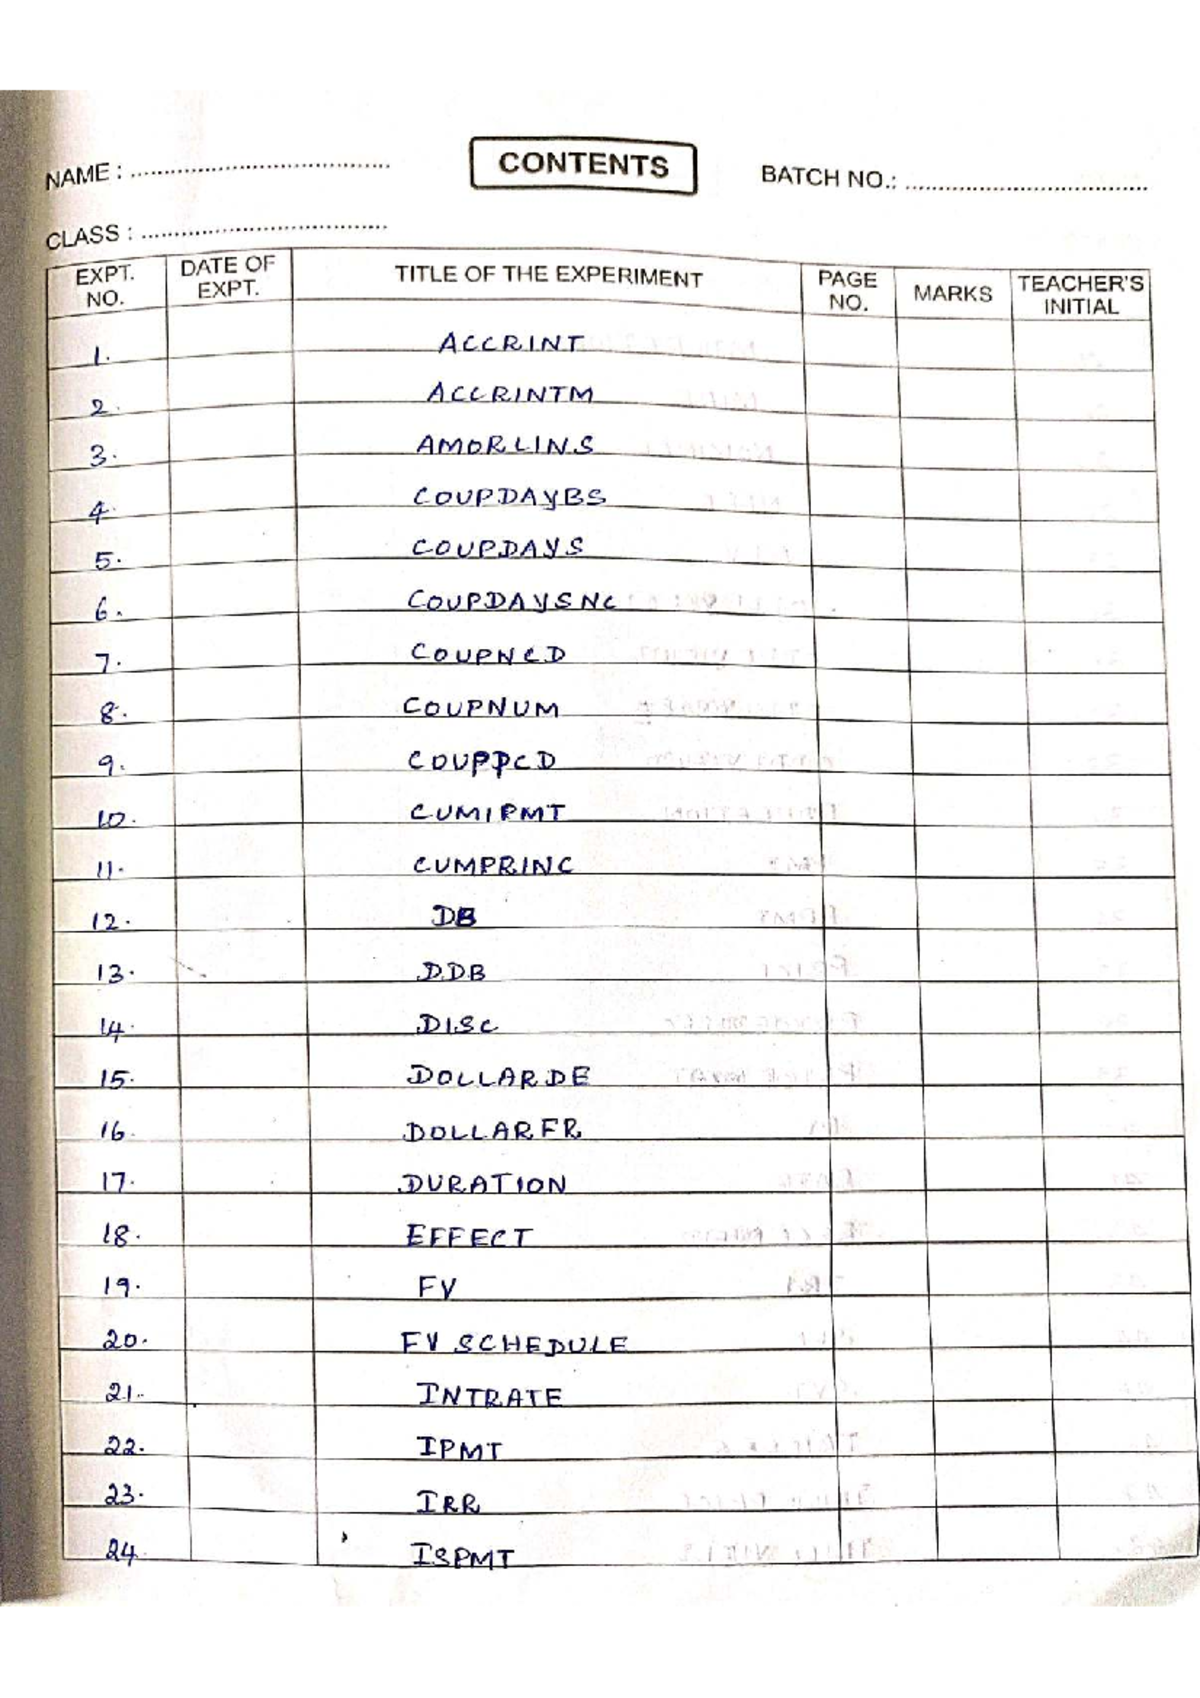 CONTENTS
NAME : ......................................
BATCH NO.: ...................................
CLASS : ....................................
EXPT. NO. DATE OF EXPT. TITLE OF THE EXPERIMENT PAGE NO. MARKS TEACHER'S INITIAL
1. ACCRINT
2. ACCRINTM
3. AMORLINS
4. COUPDAYBS
5. COUPDAYS
6. COUPDAYSNC
7. COUPNCD
8. COUPNUM
9. COUPPCD
10. CUMIPMT
11. CUMPRINC
12. DB
13. DDB
14. DISC
15. DOLLARDE
16. DOLLARFR
17. DURATION
18. EFFECT
19. FV
20. FV SCHEDULE
21. INTRATE
22. IPMT
23. IRR
24. ISPMT